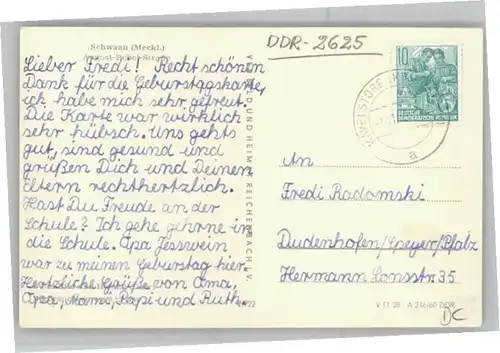 Schwaan (Meckl.)
August-Bebel-Straße
DDR-2625
Lieber Fredi! Recht schönen
Dank für die Geburstagskarte,
ich habe mich sehr gefreut.
Die Karte war wirklich
sehr hübsch. Uns gehts
gut, sind gesund und
grüßen Dich und Deinen
Eltern rechthertzlich.
Hast Du Freude an der
Schule? Ich gehe gehrne in
die Schule. Opa Jesswein
war zu meinen Geburstag hier.
Hertzliche Grüße von Oma,
Opa, Mama, Papi und Ruth.
VERLAG BILD UND HEIMAT REICHENBACH I. V.
10
DEUTSCHE
DEMOKRATISCHE REPUBLIK
KAVELSTORF
a
An
Fredi Radomski
Dudenhofen/Speyer/Pfalz
Hermann Lönsstr 35
V 11 28 A 246/60 DDR
DC